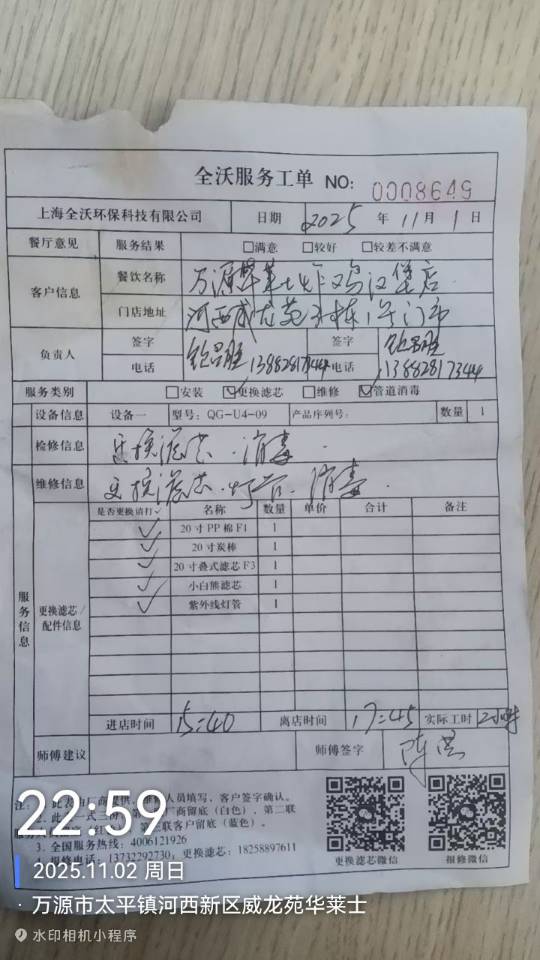 全沃服务工单 NO: 0008649
上海全沃环保科技有限公司 日期 2025 年 11 月 1 日
餐厅意见 服务结果 □满意 □较好 □较差不满意
客户信息 餐饮名称 万源华莱士炸鸡汉堡店
门店地址 河西威龙苑 栋1号门市
负责人 签字 签字
电话 13882817344 电话 13882817344
服务类别 □安装 ☑更换滤芯 □维修 ☑管道消毒
设备信息 设备一 型号: QG-U4-09 产品序列号: 数量 1
检修信息 更换滤芯.消毒.
维修信息 更换滤芯.灯管.消毒.
是否更换请打✓ 名称 数量 单价 合计 备注
✓ 20寸PP棉F1 1
✓ 20寸炭棒 1
✓ 20寸叠式滤芯F3 1
✓ 小白熊滤芯 1
✓ 紫外线灯管 1
服务信息
更换滤芯/
配件信息
进店时间 15:40 离店时间 17:45 实际工时 2小时
师傅建议 师傅签字
人员填写、客户签字确认。
厂商留底(白色)、第二联
联客户留底(蓝色)。
3. 全国服务热线: 4006121926
4. 报修电话: 13732292730, 更换滤芯: 18258897611
更换滤芯微信 报修微信
22:59
2025.11.02 周日
· 万源市太平镇河西新区威龙苑华莱士
水印相机小程序